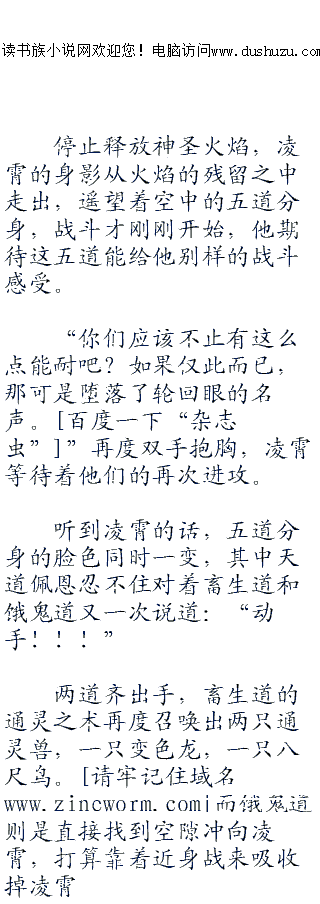 读书族小说网欢迎您！电脑访问www.dushuzu.com
停止释放神圣火焰，凌
霄的身影从火焰的残留之中
走出，遥望着空中的五道分
身，战斗才刚刚开始，他期
待这五道能给他别样的战斗
感受。
“你们应该不止有这么
点能耐吧？如果仅此而已，
那可是堕落了轮回眼的名
声。[百度一下“杂志
虫”]”再度双手抱胸，凌霄
等待着他们的再次进攻。
听到凌霄的话，五道分
身的脸色同时一变，其中天
道佩恩忍不住对着畜生道和
饿鬼道又一次说道：“动
手！！！”
两道齐出手，畜生道的
通灵之术再度召唤出两只通
灵兽，一只变色龙，一只八
尺鸟。[请牢记住域名
www.zincworm.com|而饿鬼道
则是直接找到空隙冲向凌
霄，打算靠着近身战来吸收
掉凌霄